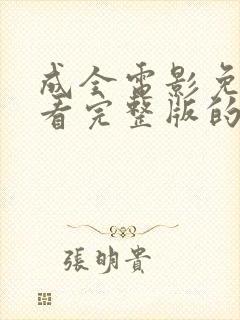 成全電影免
看完整版的
張明貴